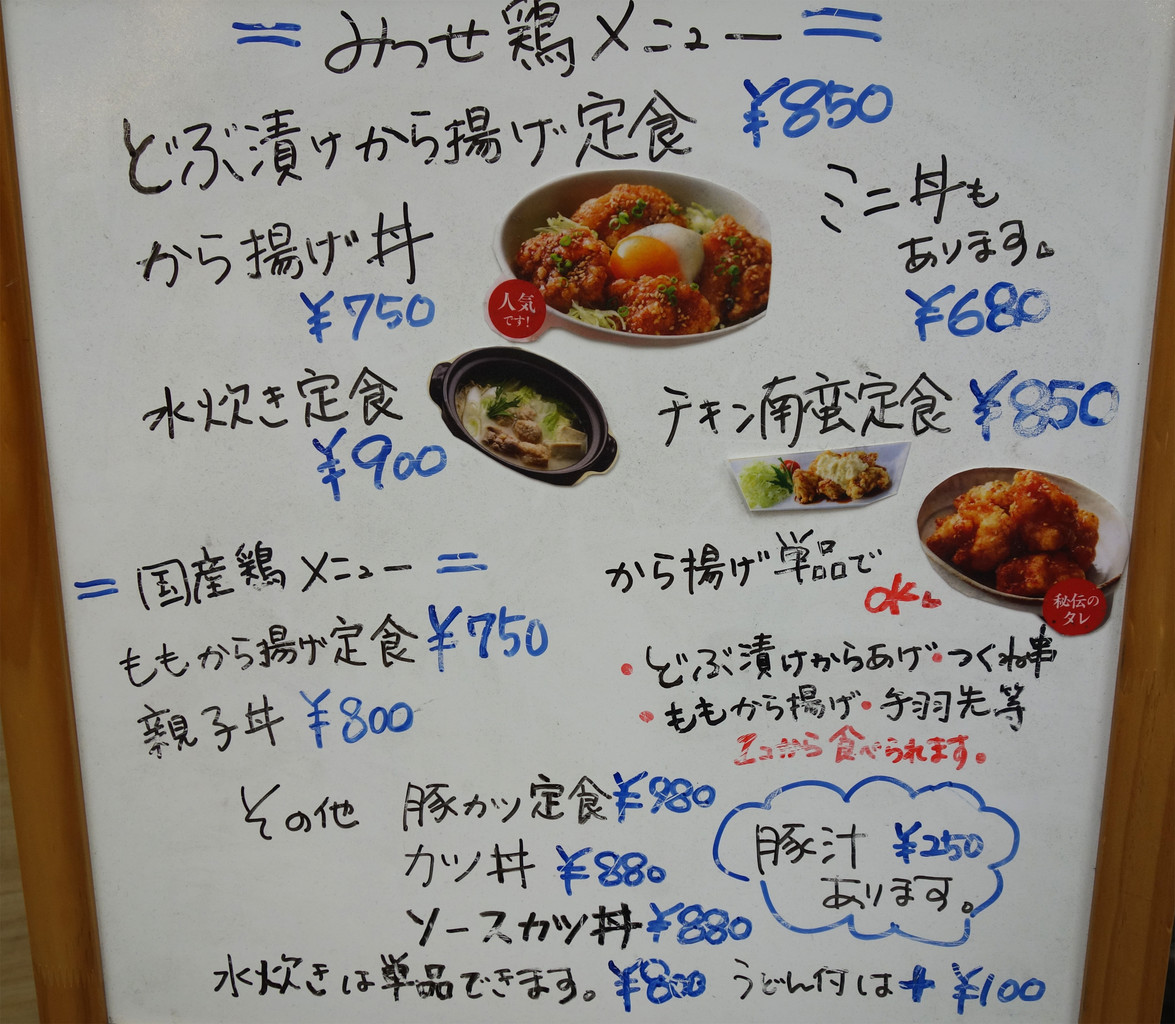 = みつせ鶏メニュー =
どぶ漬けから揚げ定食 ¥850
から揚げ丼
¥750
人気
です!
ミニ丼も
あります。
¥680
水炊き定食
¥900
チキン南蛮定食 ¥850
から揚げ単品で
OK。
秘伝の
タレ
・どぶ漬けからあげ・つくね串
・ももから揚げ・手羽先等
1コから食べられます。
= 国産鶏メニュー =
ももから揚げ定食 ¥750
親子丼 ¥800
その他 豚カツ定食 ¥980
カツ丼 ¥880
ソースカツ丼 ¥880
豚汁 ¥250
あります。
水炊きは単品でできます。 ¥800 うどん付は+¥100